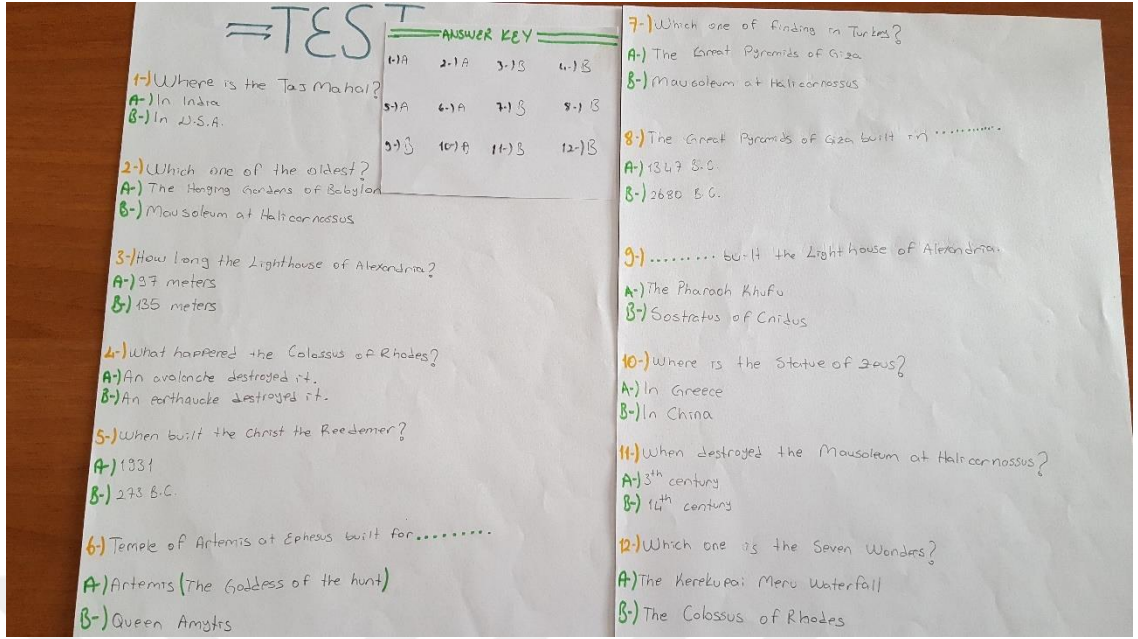 ⇒TEST
ANSWER KEY
1-)A 2-)A 3-)B 4-)B
5-)A 6-)A 7-)B 8-)B
9-)B 10-)A 11-)B 12-)B
1-)Where is the Taj Mahal?
A-)In India
B-)In U.S.A.
2-)Which one of the oldest?
A-) The Hanging Gardens of Babylon
B-) Mausoleum at Halicarnossus
3-)How long the Lighthouse of Alexandria?
A-) 97 meters
B-) 135 meters
4-)What happened the Colossus of Rhodes?
A-)An avalanche destroyed it.
B-)An earthquacke destroyed it.
5-)When built the Christ the Reedemer?
A-)1931
B-) 273 B.C.
6-) Temple of Artemis at Ephesus built for.........
A-)Artemis (The Goddess of the hunt)
B-)Queen Amytis
7-)Which one of finding in Turkey?
A-) The Great Pyramids of Giza
B-) Mausoleum at Halicarnossus
8-)The Great Pyramids of Giza built in ............
A-) 1347 B.C.
B-) 2680 B.C.
9-) ......... built the Lighthouse of Alexandria.
A-)The Pharaoh Khufu
B-)Sostratus of Cnidus
10-)Where is the Statue of Zeus?
A-)In Greece
B-)In China
11-)When destroyed the Mausoleum at Halicarnossus?
A-)3th century
B-) 14th century
12-)Which one is the Seven Wonders?
A-)The Kerekupai Meru Waterfall
B-)The Colossus of Rhodes